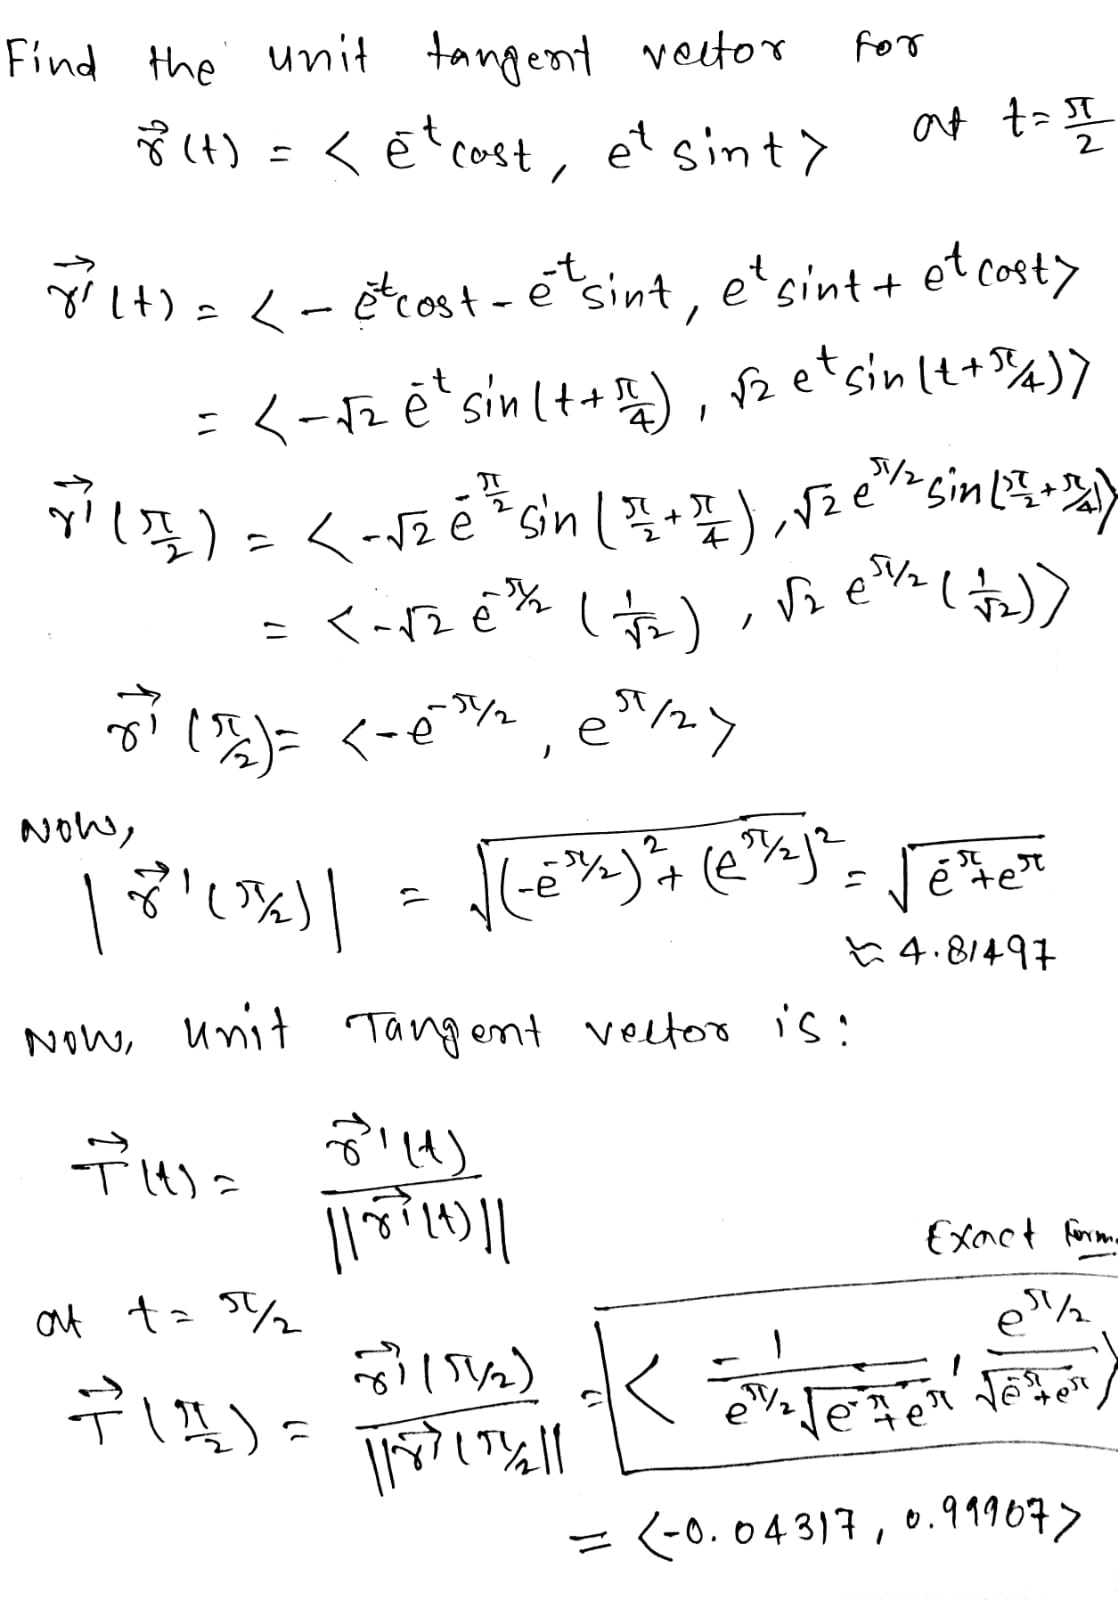 Find the unit tangent vector for
r⃗(t) = < e^-t cost, e^t sint > at t = π/2
r⃗'(t) = < - e^-t cost - e^-t sint, e^t sint + e^t cost >
= < -√2 e^-t sin(t + π/4), √2 e^t sin(t + π/4) >
r⃗'(π/2) = < -√2 e^-π/2 sin(π/2 + π/4), √2 e^π/2 sin(π/2 + π/4) >
= < -√2 e^-π/2 (1/√2), √2 e^π/2 (1/√2) >
r⃗'(π/2) = < -e^-π/2, e^π/2 >
Now,
|r⃗'(π/2)| = √((-e^-π/2)^2 + (e^π/2)^2) = √(e^-π + e^π)
≈ 4.81497
Now, Unit Tangent vector is:
T⃗(t) = r⃗'(t) / ||r⃗'(t)||
Exact Form.
at t = π/2
T⃗(π/2) = r⃗'(π/2) / ||r⃗'(π/2)|| = < -1 / (e^π/2 √(e^-π + e^π)), e^π/2 / √(e^-π + e^π) >
= <-0.04317, 0.99907>